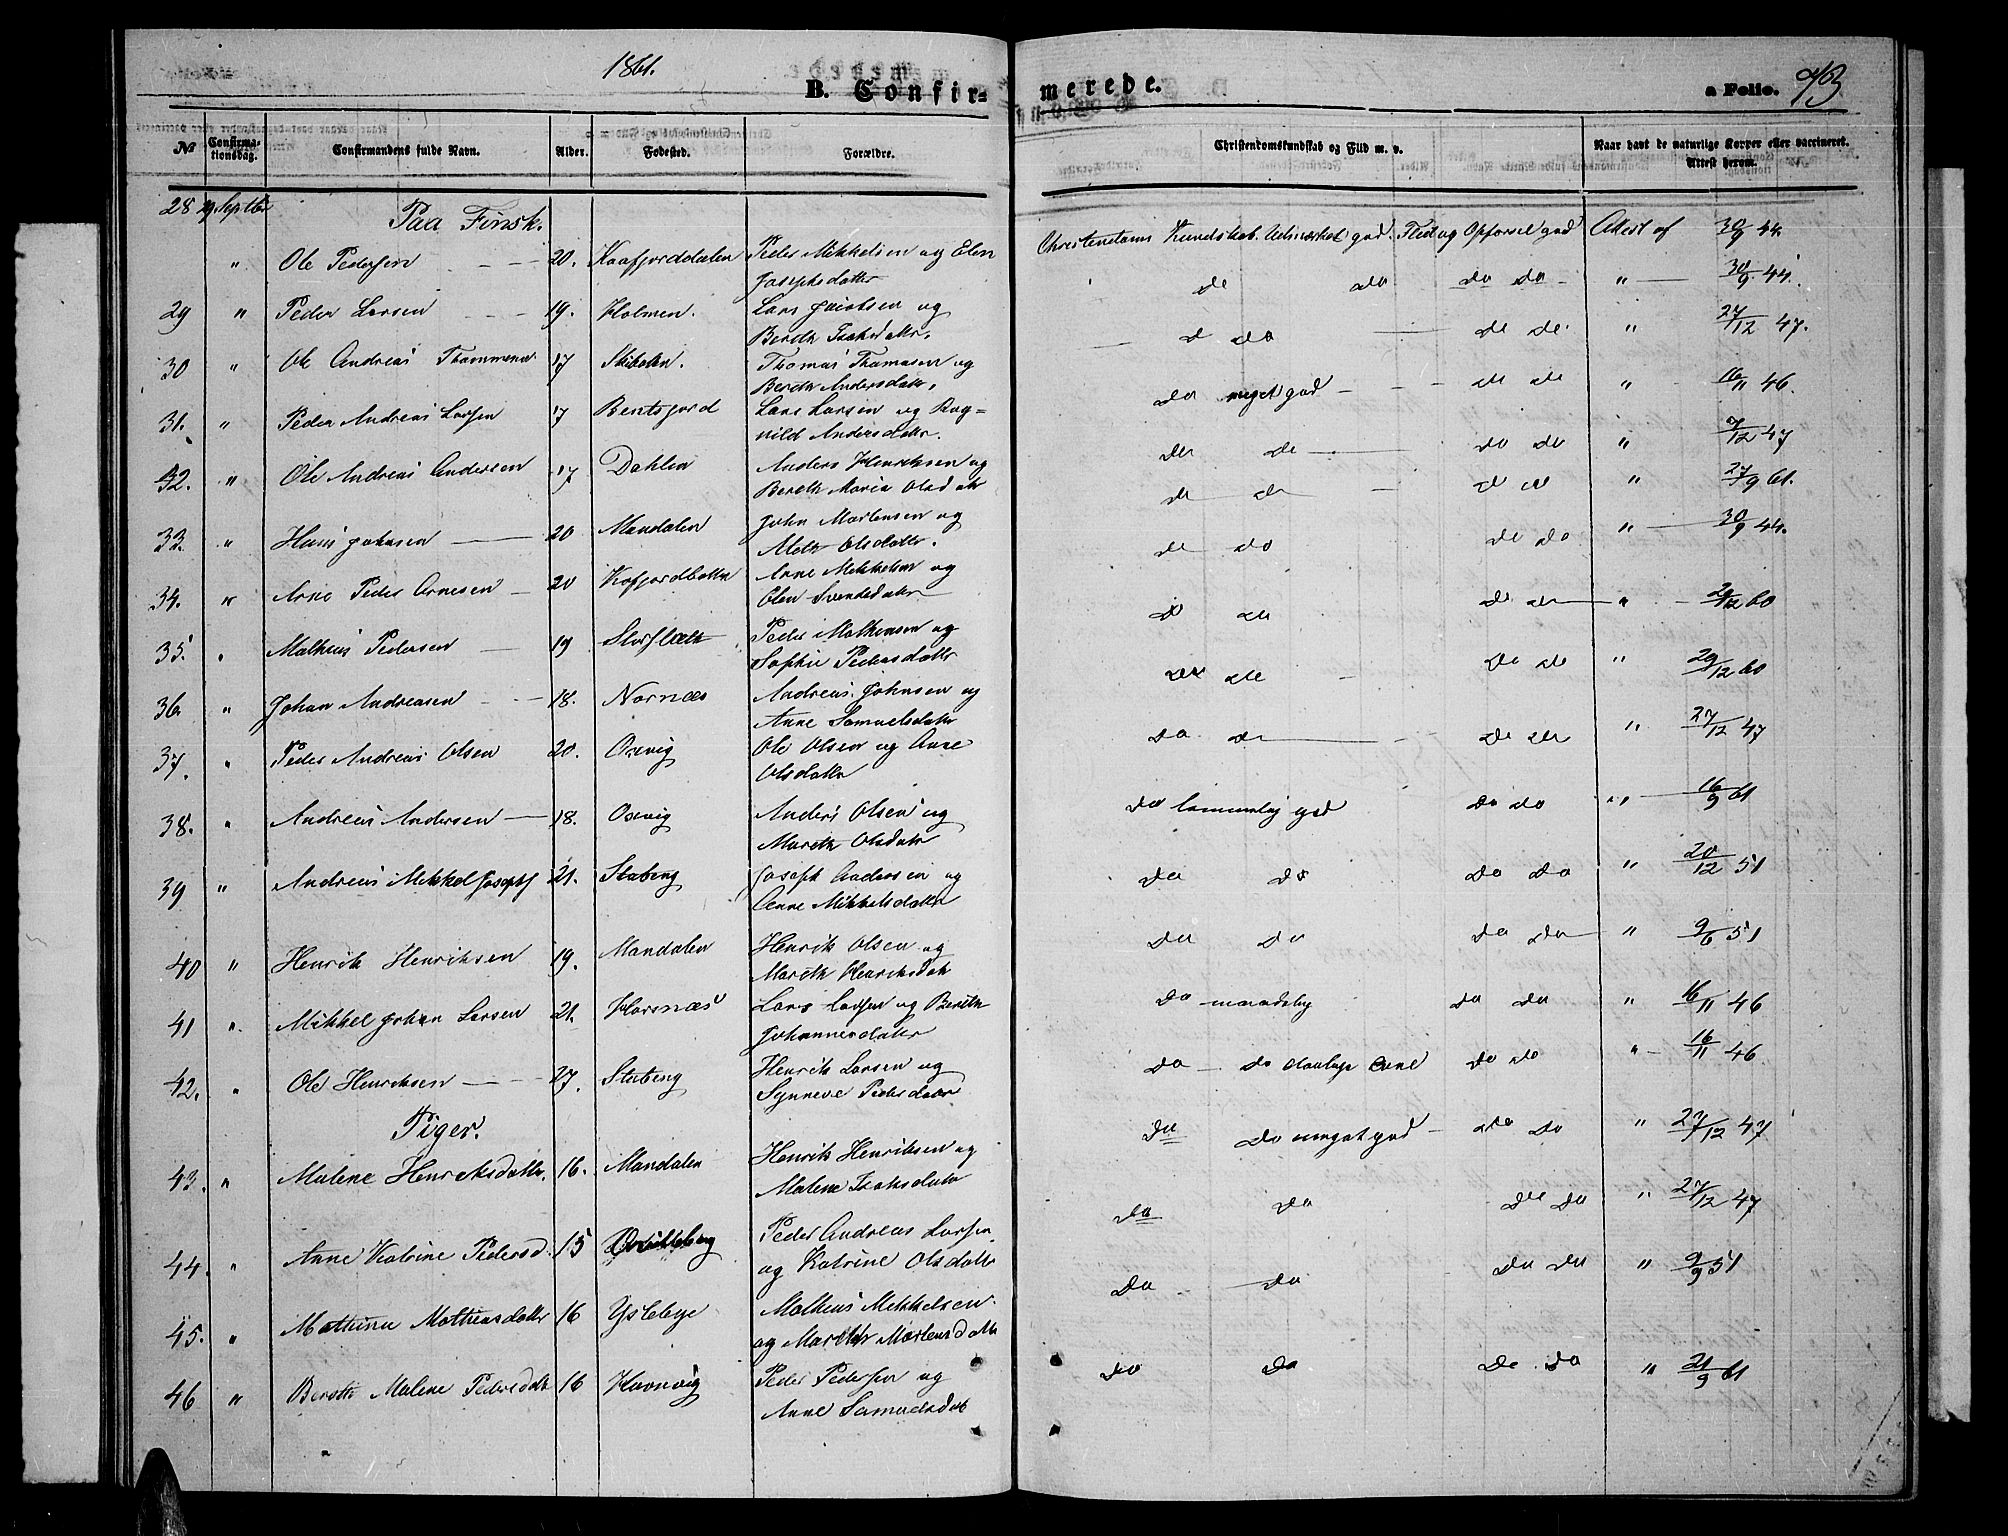 1861.
B. Confirmerede.
a Folio. 73
№ Confirmationsdag. Confirmandens fulde Navn. Alder. Fødested. Forældre. Christendomskundskab og Flid m. v. Naar havt de naturlige Kopper eller vaccineret. Attest herom.
28 29 Septbr Paa Finsk.
" Ole Pedersen 20. Kaafjorddalen Peder Mikkelsen og Elen Josephsdatter Christendoms Kundskab. Udmærket god. Flid og Opførsel god Attest af 30/9 44.
29 " Peder Larsen 19. Holmen. Lars Jacobsen og Bereth Isaksdattr. do do do do " 30/9 44.
30 " Ole Andreas Thommesen 17 Skibotn. Thomas Thomasen og Bereth Andersdattr. do do do " 27/12 47.
31. " Peder Andreas Larsen 17 Bentsjord Lars Larsen og Ragnild Andersdattr. do meget god do do " 16/11 46.
32. " Ole Andreas Andersen 17 Dahlen Anders Henriksen og Bereth Maria Olsdatr do do do do " 7/12 47
33. " Hans Johnsen 20 Mandalen John Mortensen og Meth Olsdattr. do do do do " 27/9 61.
34. " Arne Peder Arnesen 20 Kofjordbotten Arne Mikkelsen og Elen Svendsdatr do do do do " 30/9 44.
35. " Mathis Pedersen 19 Storslæth Peder Mathisen og Sophie Pedersdattr do do do do " 29/12 60
36 " Johan Andreasen 18. Nornæs Andreas Johnsen og Anne Samuelsdatr do do do do " 29/12 60
37. " Peder Andreas Olsen 20. Oxvig Ole Olsen og Anne Olsdattr do do do do " 27/12 47
38. " Andreas Andersen 18. Oxvig Anders Olsen og Mareth Olsdatr do temmelig god do do " 16/9 61
39 " Andreas Mikkel Josephs 21. Stubeng Joseph Andersen og Anne Mikkelsdattr do do do do " 20/12 51
40 " Henrik Henriksen 19. Mandalen Henrik Olsen og Mareth Henriksdatr do do do do " 9/6 51
41 " Mikkel Johan Larsen 21. Horsnæs Lars Larsen og Bereth Johannesdatr do maadelig do do " 16/11 46
42. " Ole Henriksen 27. Stubeng Henrik Larsen og Synneve Pedersdatr do do daarlige Evne do do " 16/11 46
Piger.
43. " Malene Henriksdattr. 16. Mandalen Henrik Henriksen og Malene Isaksdatr do do meget god do do " 27/12 47
44. " Anne Katrine Pedersd. 15 Peder Andreas Larsen og Katrine Olsdattr do do do do " 27/12 47
45. " Mathisdattr 16 Ysteby Mathis Mikkelsen og Mareth Mortensdattr do do do do " 9/9 51
46 " Bereth Malene Pedersdatr 16 Havnvig Peder Pedersen og Anne Samuelsdat do do do do " 21/9 61